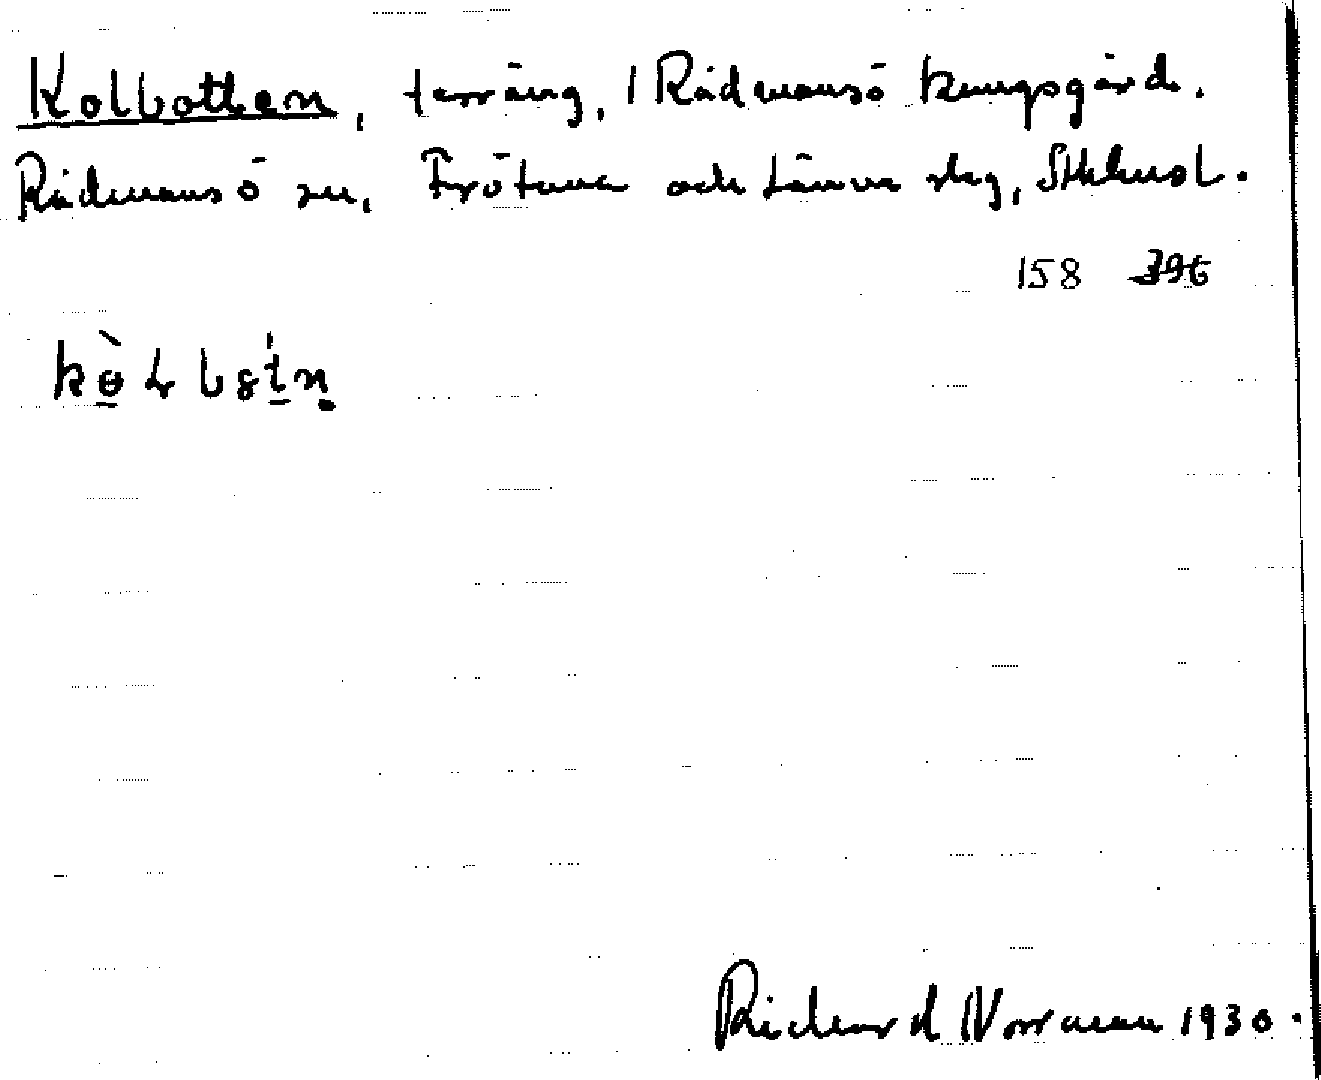 Kolbotten, terräng, 1 Rådmansö kungsgård.
Rådmansö sn, Frötuna och Länna skg, Sthlms l.
158 396
Richard Norrman 1930.